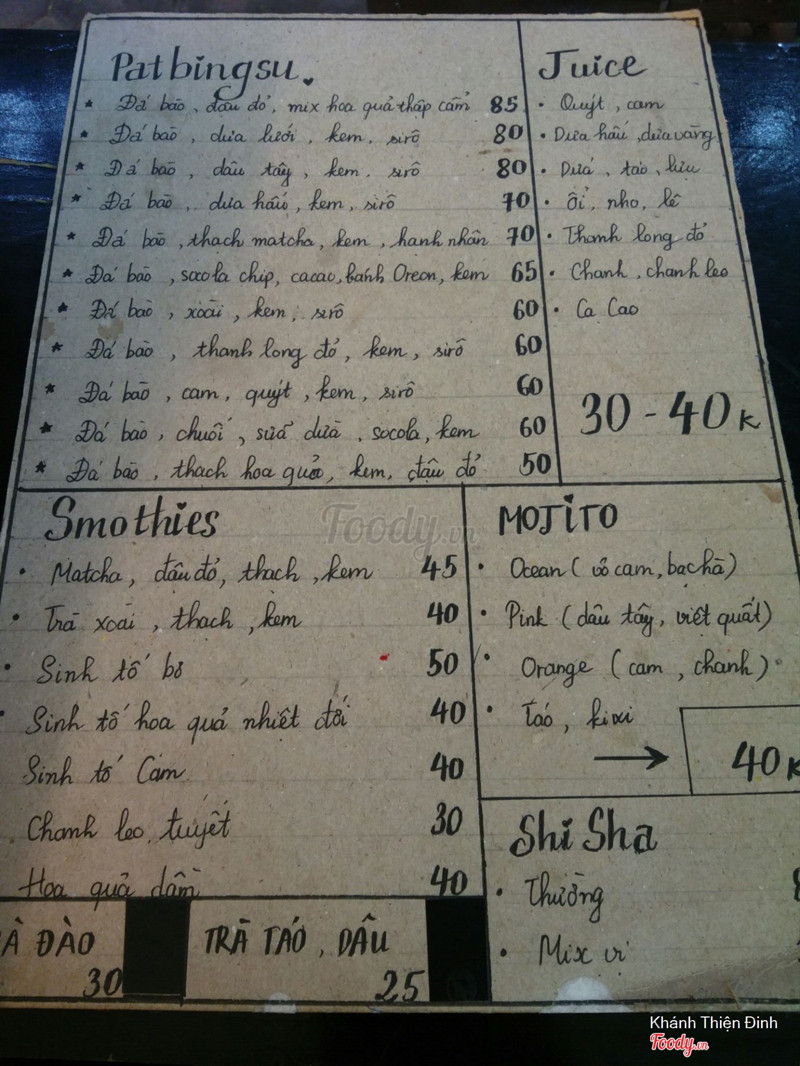 Patbingsu
Đá bào, đậu đỏ, mix hoa quả thập cẩm 85
Đá bào, dưa lưới, kem, sirô 80
Đá bào, dâu tây, kem, sirô 80
Đá bào, dưa hấu, kem, sirô 70
Đá bào, thạch matcha, kem, hạnh nhân 70
Đá bào, socola chip, cacao, bánh Oreon, kem 65
Đá bào, xoài, kem, sirô 60
Đá bào, thanh long đỏ, kem, sirô 60
Đá bào, cam, quýt, kem, sirô 60
Đá bào, chuối, sữa dừa, socola, kem 60
Đá bào, thạch hoa quả, kem, đậu đỏ 50
Juice
Quýt, cam
Dưa hấu, dưa vàng
Dứa, táo, lựu
Ổi, nho, lê
Thanh long đỏ
Chanh, chanh leo
Ca Cao
30 - 40k
Smothies
Matcha, đậu đỏ, thạch, kem 45
Trà xoài, thạch, kem 40
Sinh tố bơ 50
Sinh tố hoa quả nhiệt đới 40
Sinh tố Cam 40
Chanh leo tuyết 30
Hoa quả dầm 40
MOJITO
Ocean (vỏ cam, bạc hà)
Pink (dâu tây, việt quất)
Orange (cam, chanh)
Táo, kiwi
40k
Shi Sha
Thường
Mix vị
À ĐÀO
30
TRÀ TÁO, DÂU
25
Foody.vn
Khánh Thiện Đinh
Foody.vn